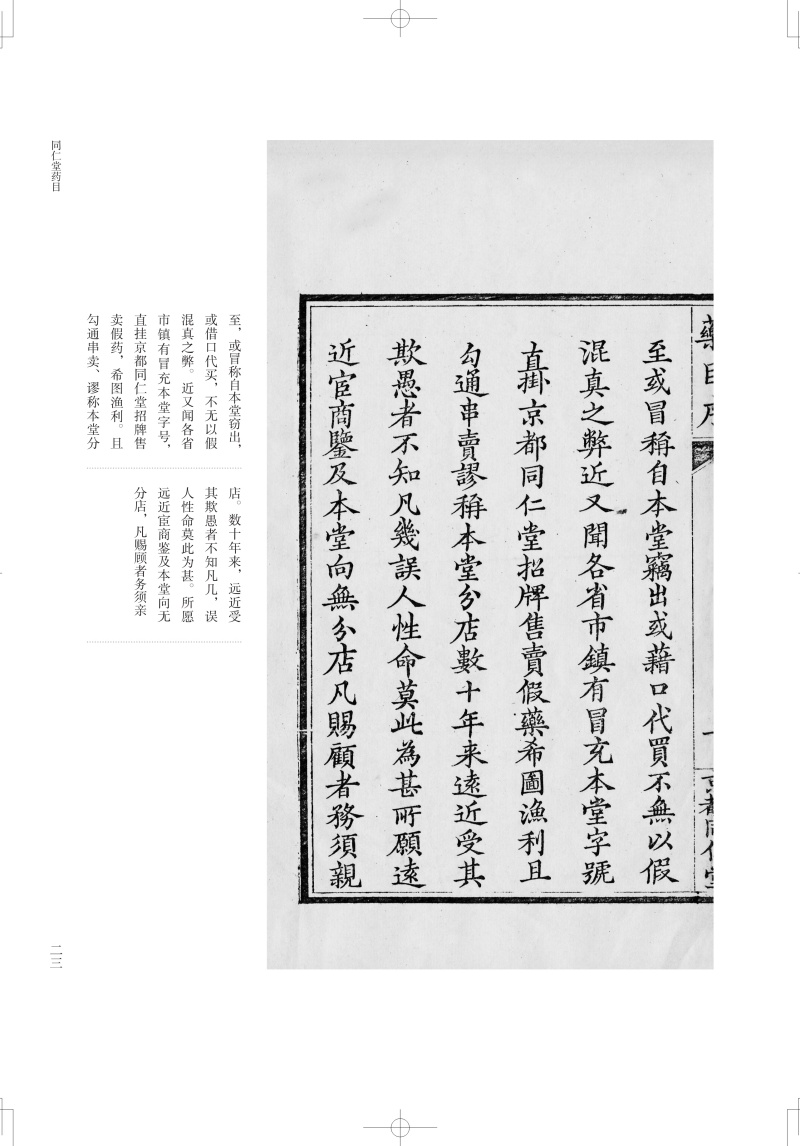 藥目序
一
京都同仁堂
至或冒稱自本堂竊出或藉口代買不無以假
混真之弊近又聞各省市鎮有冒充本堂字號
直掛京都同仁堂招牌售賣假藥希圖漁利且
勾通串賣謬稱本堂分店數十年来遠近受其
欺愚者不知凡幾誤人性命莫此為甚所願遠
近宦商鑒及本堂向無分店凡賜顧者務須親
至，或冒称自本堂窃出，
或借口代买，不无以假
混真之弊。近又闻各省
市镇有冒充本堂字号，
直挂京都同仁堂招牌售
卖假药，希图渔利。且
勾通串卖、谬称本堂分
店。数十年来，远近受
其欺愚者不知凡几，误
人性命莫此为甚。所愿
远近宦商鉴及本堂向无
分店，凡赐顾者务须亲
同仁堂药目
二三